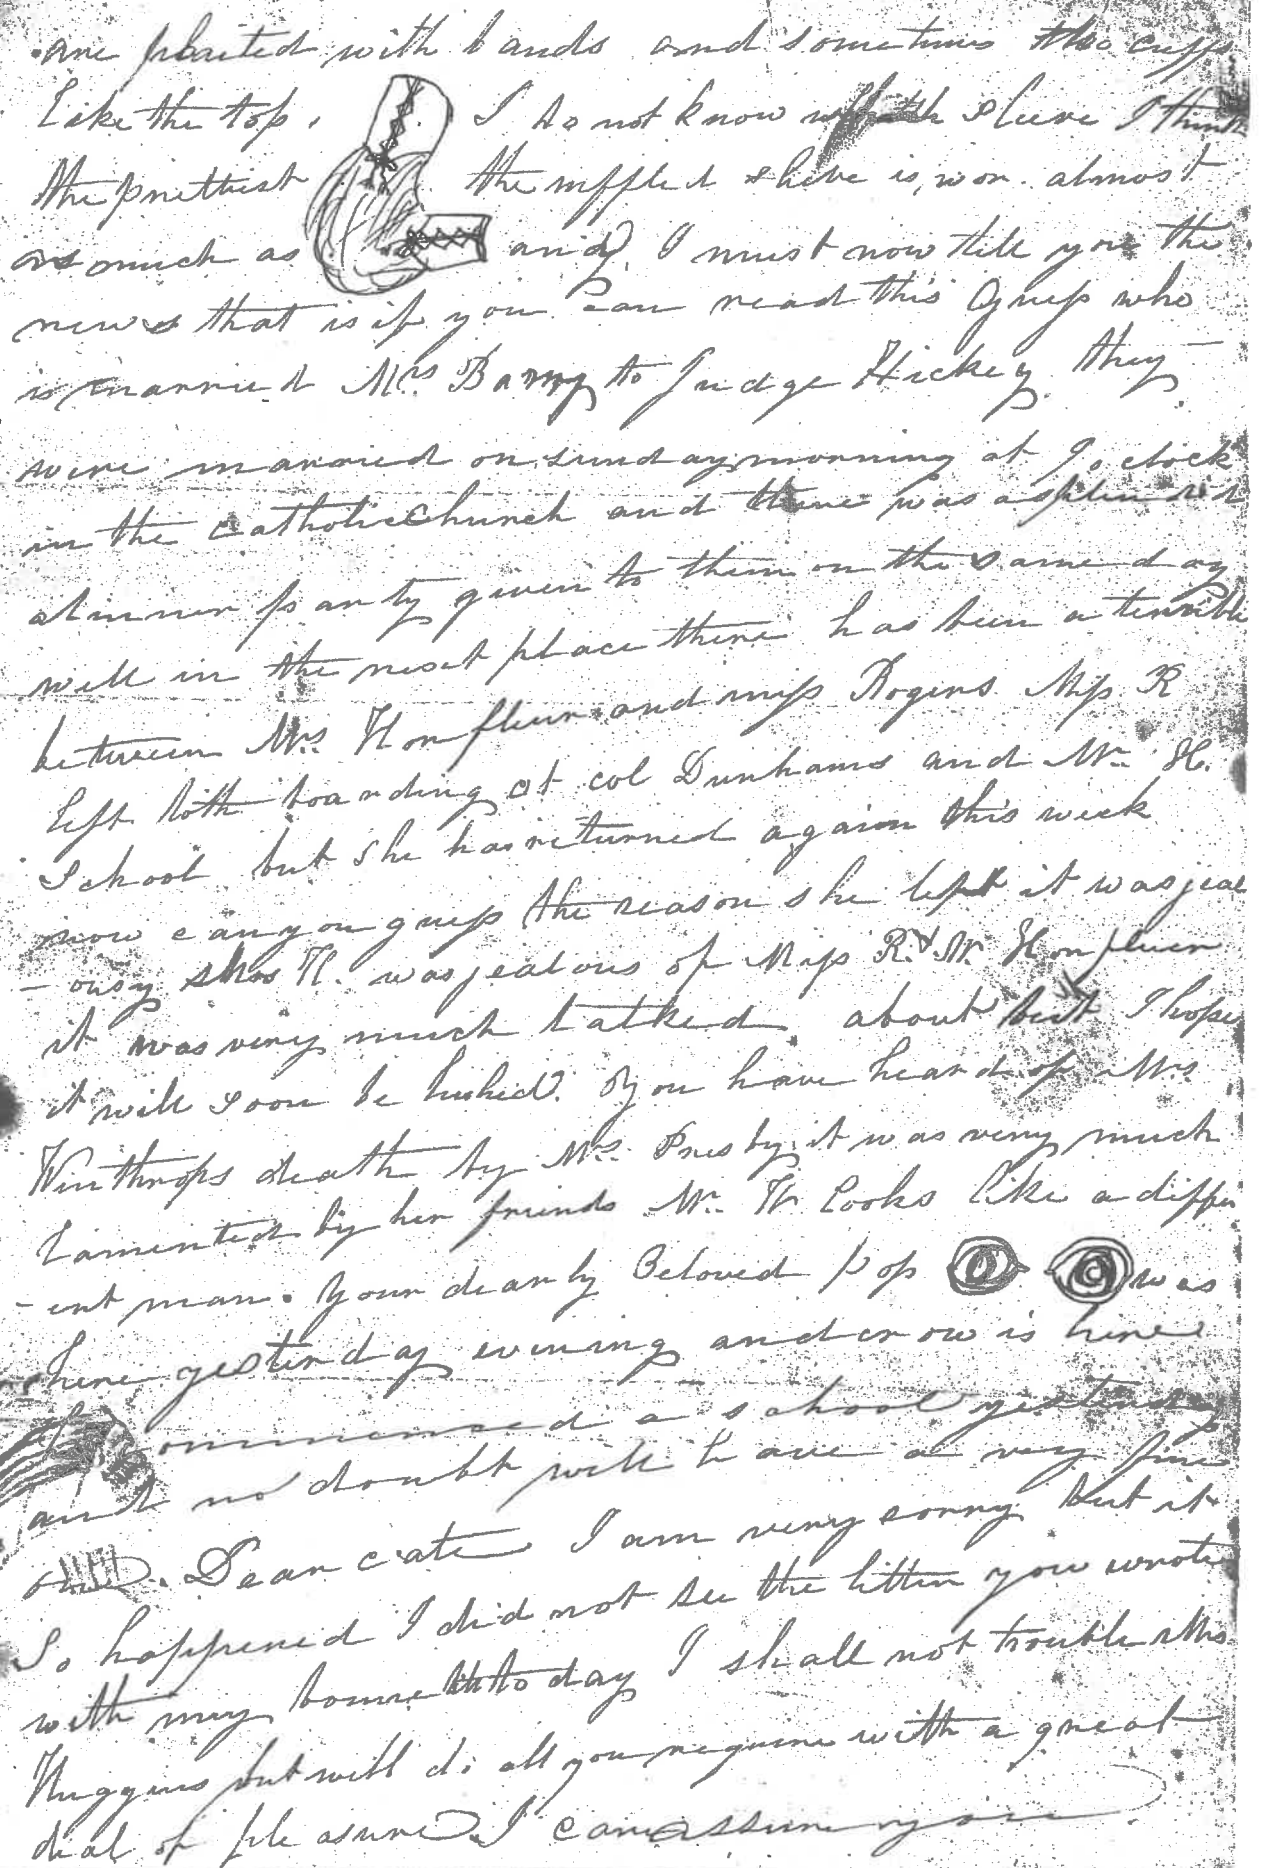 are plaited with bands and sometimes the cuffs
Like the top. I do not know which sleeve I think
the prettiest the ruffled sleve is wor almost
as much as any. I must now tell you the
news that is if you can read this Guess who
is married Mrs Barry to Judge Hickey they
were married on sunday morning at 9 o clock
in the catholic Church and there was a splendid
dinner party given to them on the same day
well in the next place there has been a terrible
between Mrs. Honfleur and miss Rogers. Miss R
left both boarding at col Dunhams and Mr. H.
School but she has returned again this week
now can you guess the reason she left it was jeal
- ousy Mrs H. was jealous of Miss R. & Mr. Honfleur
it was very much talked about but I hope
it will soon be hushed. You have heard of Mrs
Winthrops death by Mrs. Presby it was very much
Lamented by her friends Mr. W. Looks like a differ
- ent man. Your dearly Beloved Pop was
here yesterday evening and crow is here
commenced a school yesterday
and no doubt will have a very fine
one. Dear cate I am very sorry but it
So happened I did not see the letter you wrote
with my bonnet to day I shall not trouble Mrs
Huggins but will do all you require with a great
deal of pleasure I can assure you